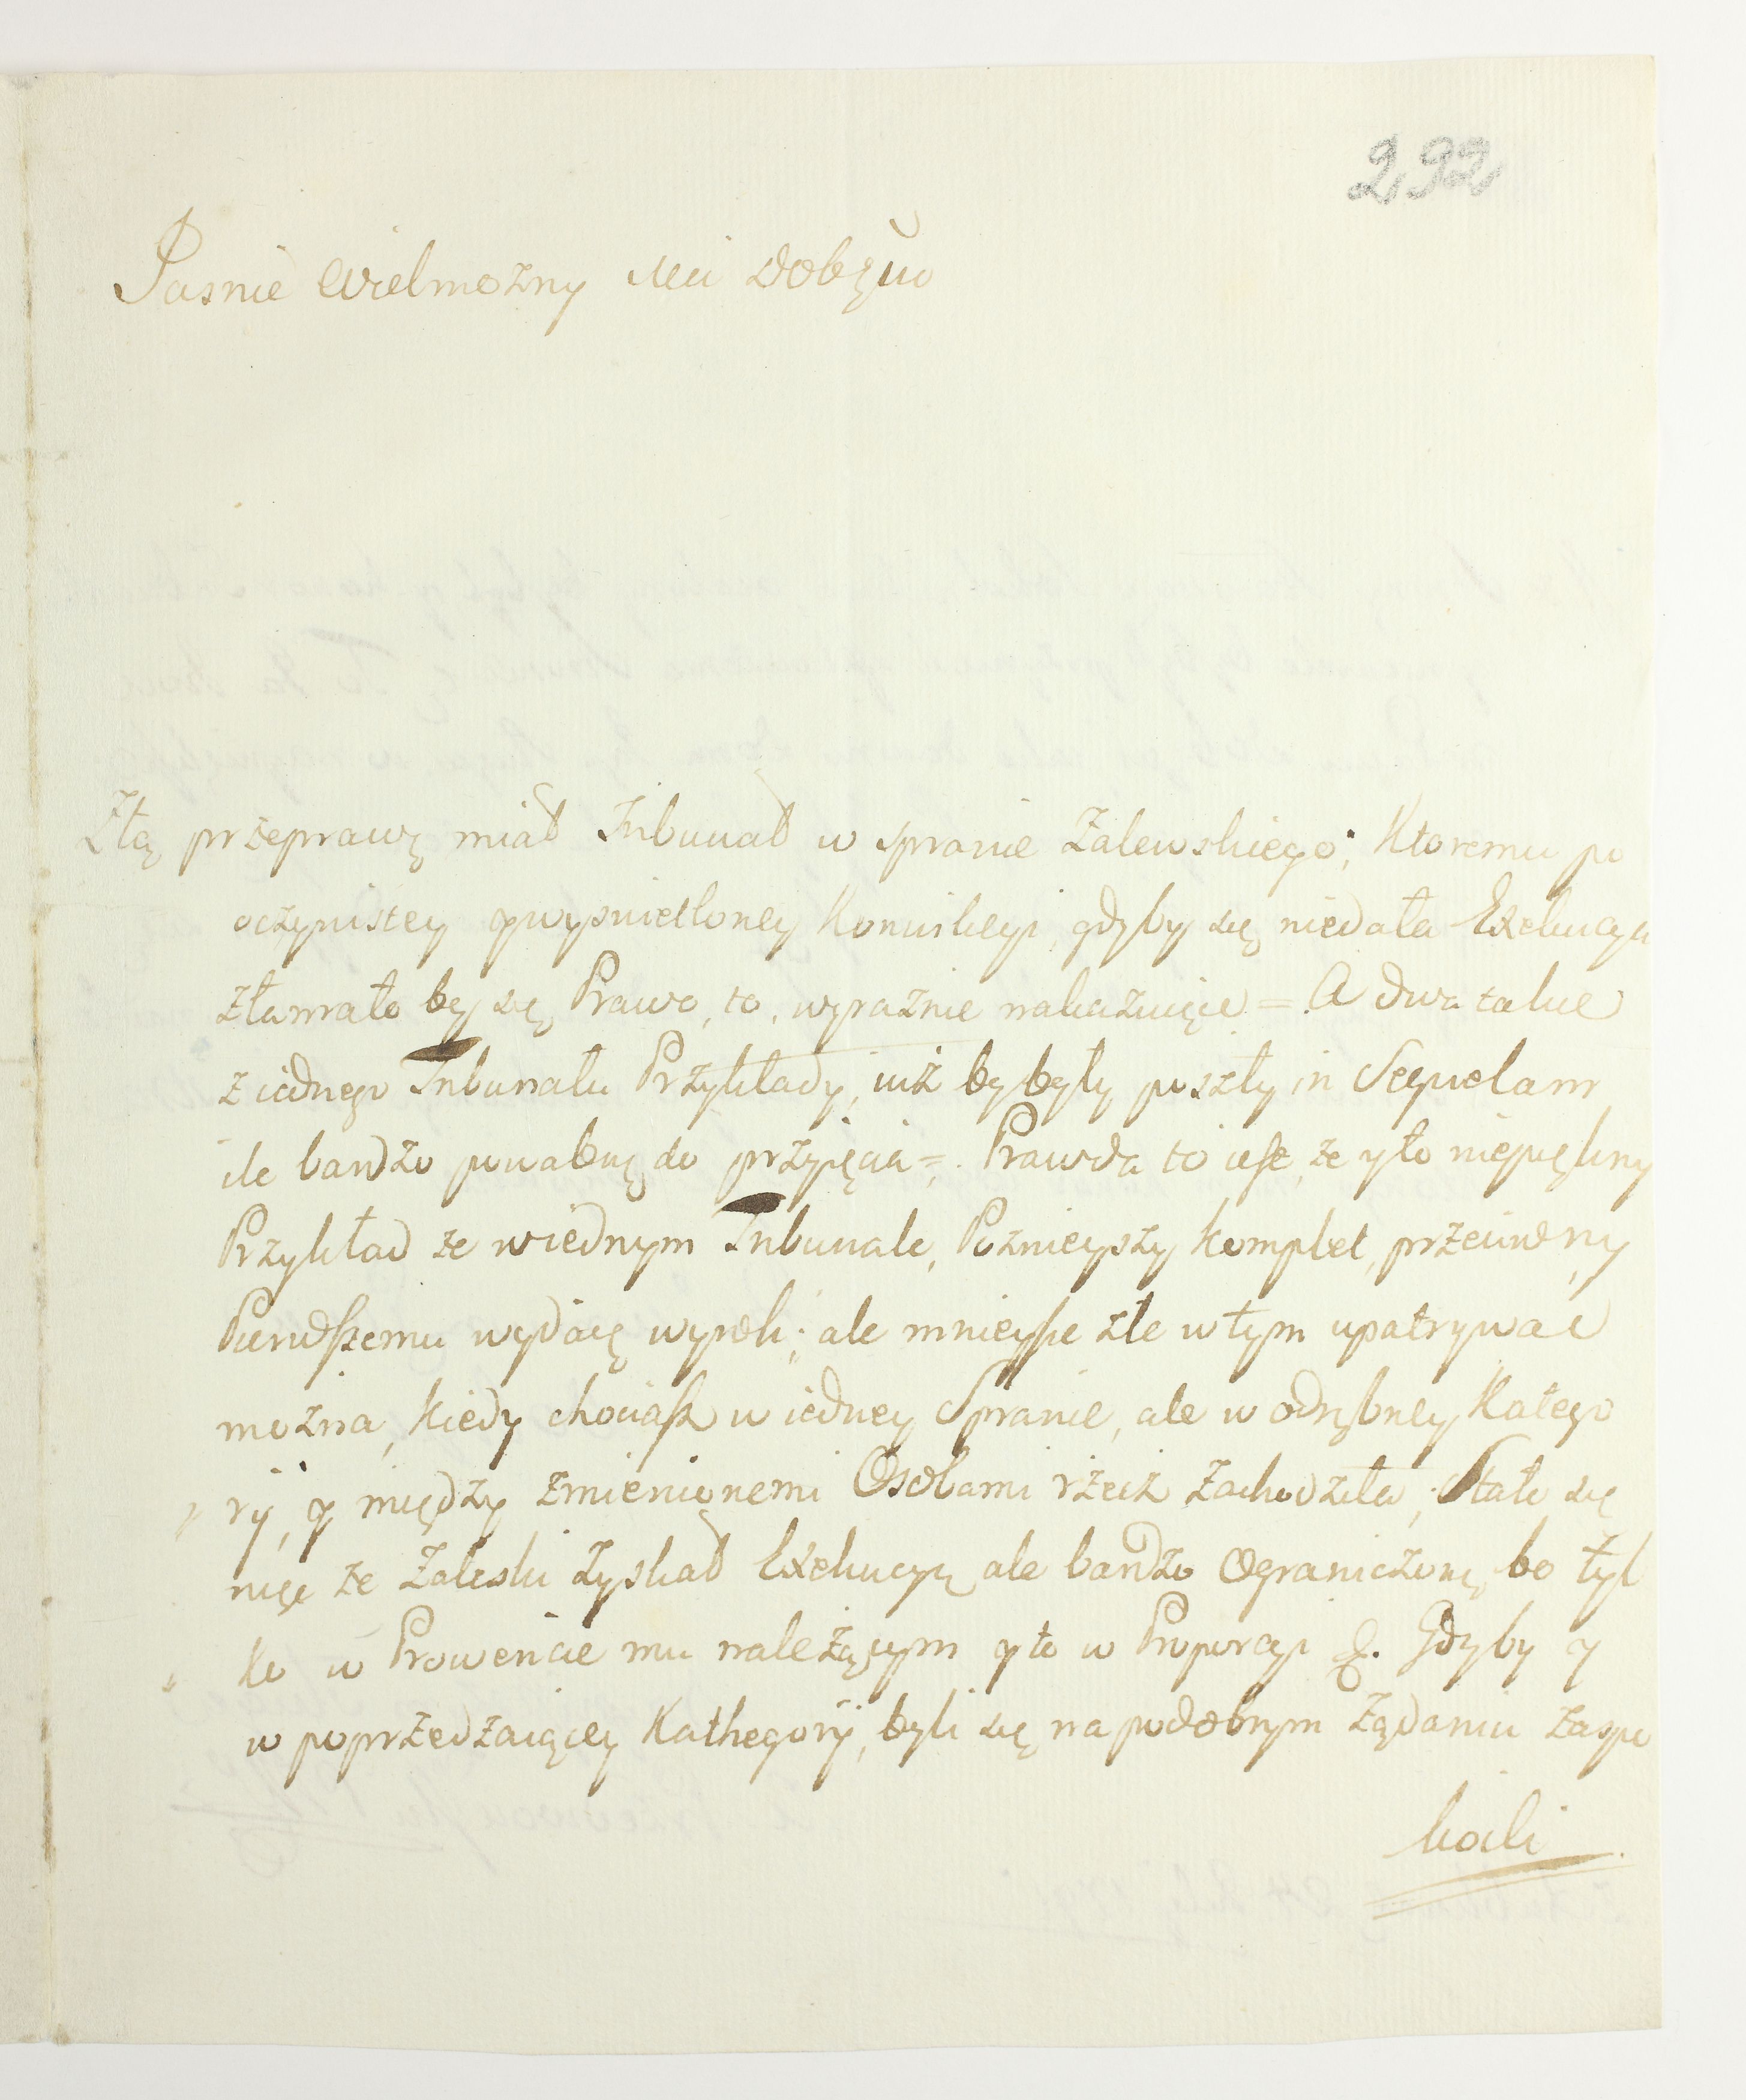 292
Jasnie Wielmożny Mci Dobżuo
Złą przeprawę miał Trbunał w sprawie Zalewskiego; Ktoremu po
oczywistey y wyswietloney Konwikcyi gdyby się niedała Exekucya
złamało by się Prawo, to, wyraznie nakazuięce = A dwa takie
z iednego Trybunału Przykłady, iuż by były poszły in Sequelam
ile bardzo powabną do przyięcia =. Prawda to iest, że y to niepiękny
Przykład że wiednym Trybunale, Poznieyszy komplet, przeciwny
Pierwszemu wydaię wyrok; ale mnieysze złe w tym upatrywać
można, kiedy chociasz w iedney Sprawie, ale w odrębney Katego
ryi, y między zmienionemi Osobami rzecz zachodziła; Stało się
więc że Zaleski zyskał Exekucyą ale bardzo Ograniczoną, bo tyl
ko w Prowencie mu należącym y to w Proporcyi Gdyby y
w poprzedzaiącey Kathegoryi, byli się na podobnym Żądaniu zaspo
koili